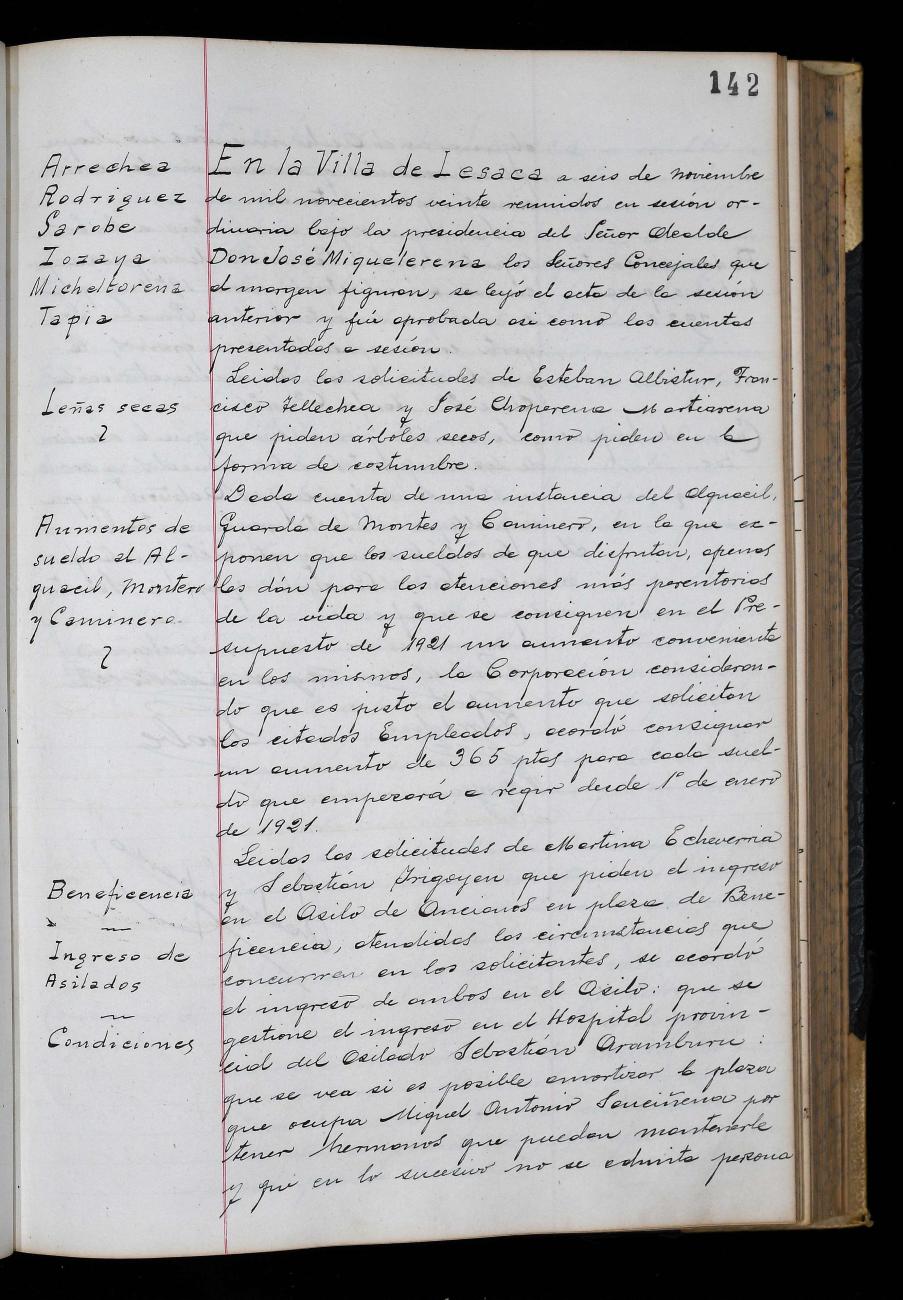 142
Arrechea
Rodriguez
Sarobe
Iozaya
Micheltorena
Tapia
En la Villa de Lesaca a seis de noviembre
de mil novecientos veinte reunidos en sesión or-
dinaria bajo la presidencia del Señor Alcalde
Don José Miquelerena los Señores Concejales que
al margen figuran, se leyó el acta de la sesión
anterior y fué aprobada asi como las cuentas
presentadas a sesión.
Leñas secas
Leidas las solicitudes de Esteban Albistur, Fran-
cisco Tellechea y José Choperena Martiarena
que piden árboles secos, como piden en la
forma de costumbre.
Aumentos de
sueldo al Al-
guacil, Montero
y Caminero.
Dada cuenta de una instancia del Alguacil,
Guarda de Montes y Caminero, en la que ex-
ponen que los sueldos de que disfrutan, apenas
les dán para las atenciones más perentorias
de la vida y que se consiguen en el Pre-
supuesto de 1921 un aumento conveniente
en los mismos, la Corporación consideran-
do que es justo el aumento que solicitan
los citados Empleados, acordó consignar
un aumento de 365 ptas para cada suel-
do que empezará a regir desde 1º de enero
de 1921.
Beneficencia
Ingreso de
Asilados
Condiciones
Leidas las solicitudes de Martina Echeverria
y Sebastián Irigoyen que piden el ingreso
en el Asilo de Ancianos en plaza de Bene-
ficencia, atendidas las circunstancias que
concurren en los solicitantes, se acordó
el ingreso de ambos en el Asilo: que se
gestione el ingreso en el Hospital provin-
cial del Asilado Sebastián Aramburu:
que se vea si es posible amortizar la plaza
que ocupa Miguel Antonio Sanciñena por
tener hermanos que puedan mantenerle
y que en lo sucesivo no se admita persona